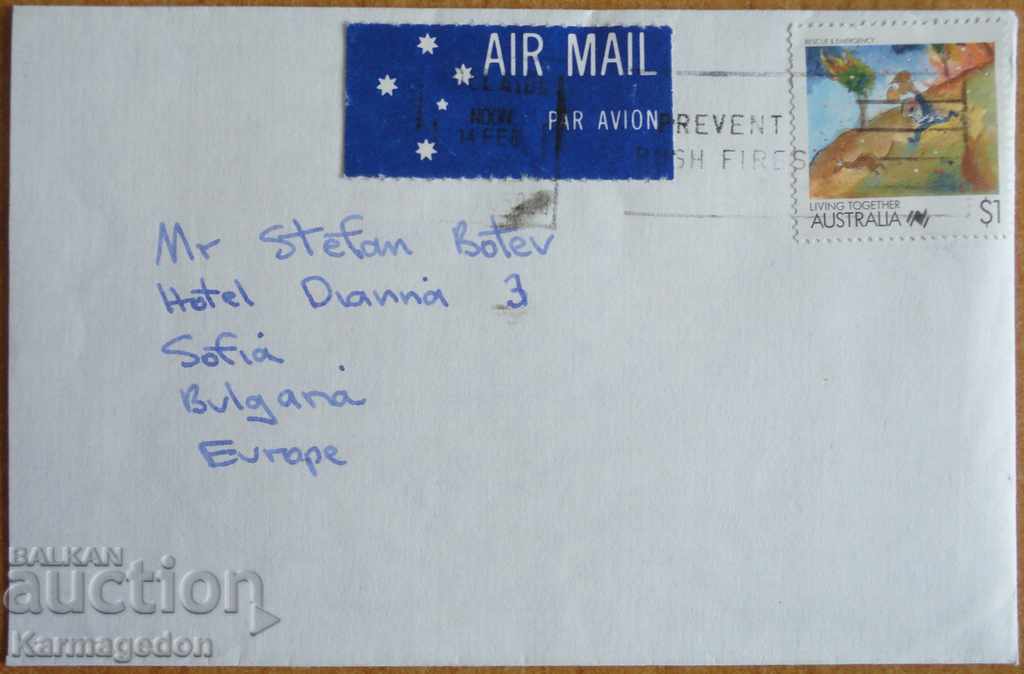 AIR MAIL
PAR AVION
NOON
14 FEB
PREVENT
BUSH FIRES
RESCUE & EMERGENCY
LIVING TOGETHER
AUSTRALIA
$1
Mr Stefan Botev
Hotel Dianna 3
Sofia
Bulgaria
Europe
BALKAN
auction
Karmagedon